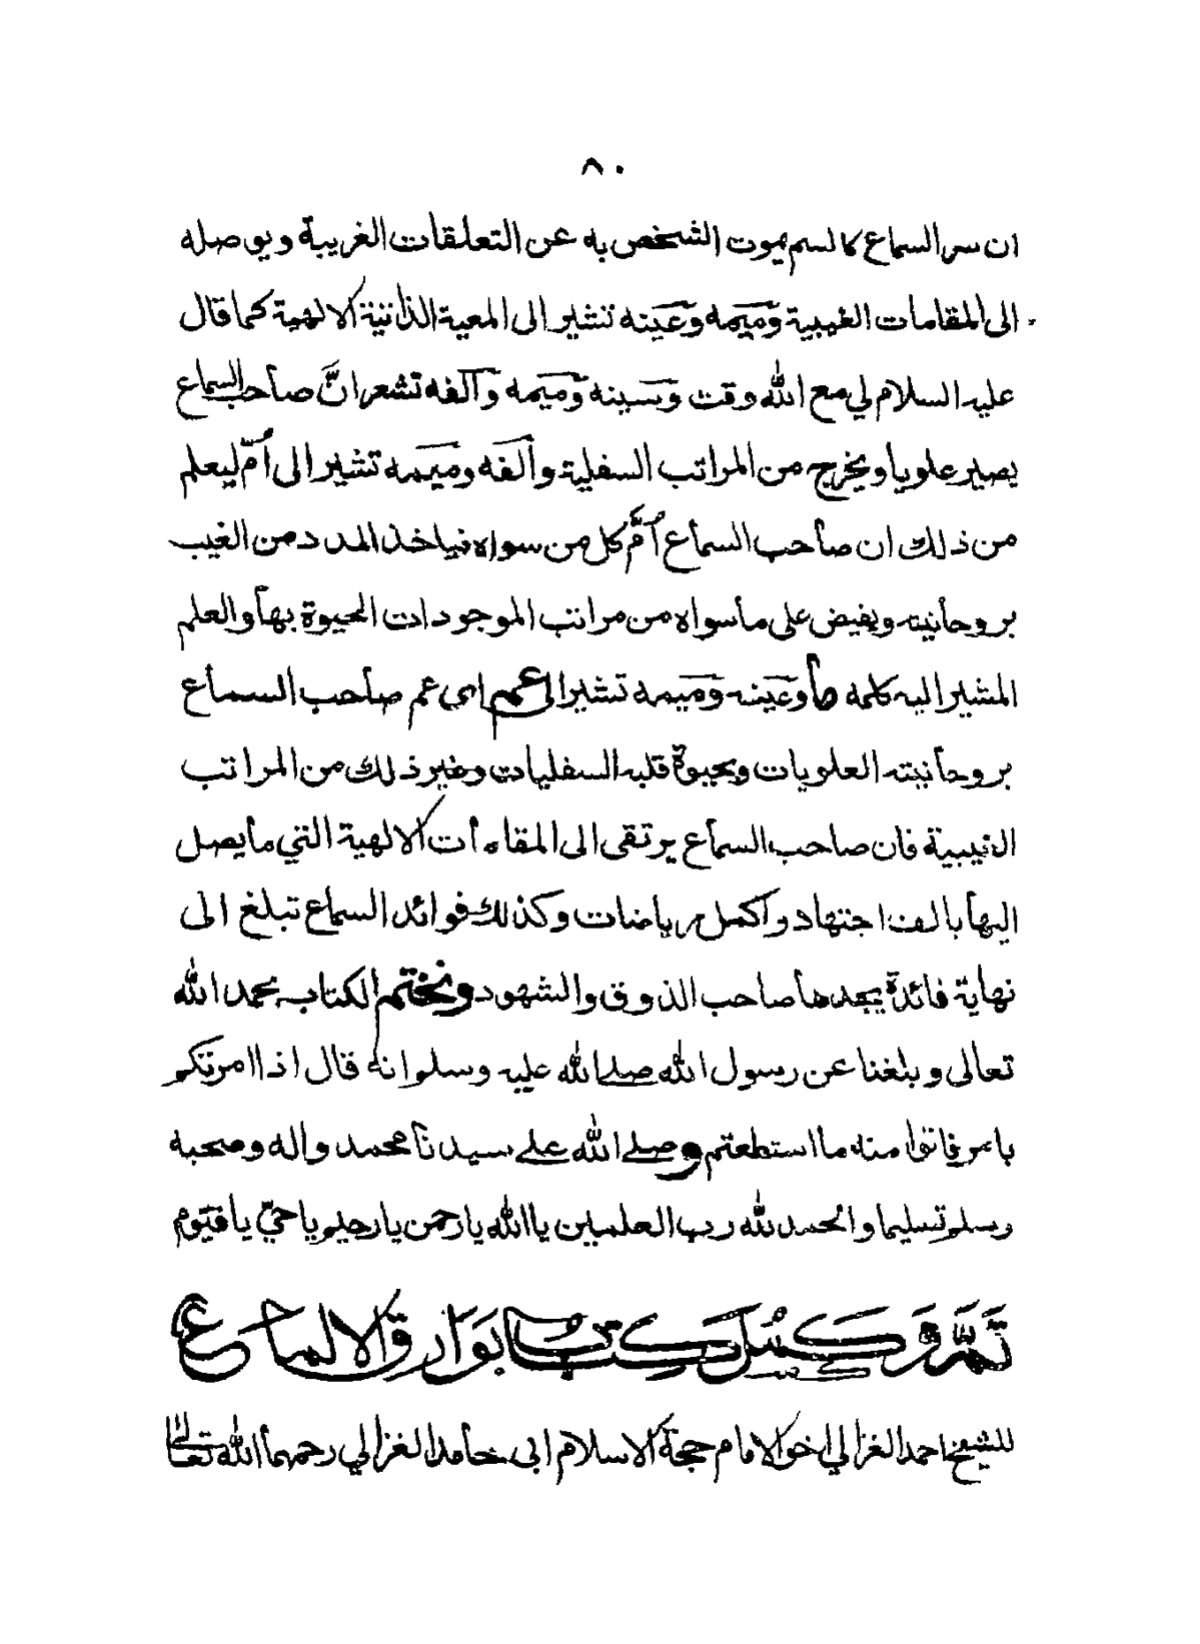 ٨٠
ان سر السماع كالسم يموت الشخص به عن التعلقات الغريبة ويوصله
الى المقامات الغيبية وميمه وعينه تشير الى المعية الذاتية الالهية كما قال
عليه السلام لي مع الله وقت وسينه وميمه وآلفه تشعر انَّ صاحب السماع
يصير علويا ويخرج من المراتب السفلية والفه وميمه تشير الى اُمّ ليعلم
من ذلك ان صاحب السماع اُمَّ كل من سواه فياخذ المدد من الغيب
بروحانيته ويفيض على ماسواه من مراتب الموجودات الحيوة بها والعلم
المشير اليه كلمه ما وعينه وميمه تشير الى عم اى عم صاحب السماع
بروحانيته العلويات وبحيوة قلبه السفليات وغير ذلك من المراتب
الغيبية فان صاحب السماع يرتقى الى المقامات الالهية التي مايصل
اليها بالف اجتهاد واكمل رياضات وكذلك فوائد السماع تبلغ الى
نهاية فائدة يجدها صاحب الذوق والشهود ونختم الكتاب بحمد الله
تعالى وبلغنا عن رسول الله صلى الله عليه وسلم انه قال اذا امرتكم
بامر فاتوا منه ما استطعتم وصلى الله على سيدنا محمد واله وصحبه
وسلم تسليما والحمد لله رب العلمين يا الله يا رحمن يا رحيم يا حيّ يا قيّوم
تَمَّ وَكَمُلَ كتابُ بَوَارِق الالماع
للشيخ احمد الغزالي اخو الامام حجة الاسلام ابى حامد الغزالي رحمهما الله تعالىٰ